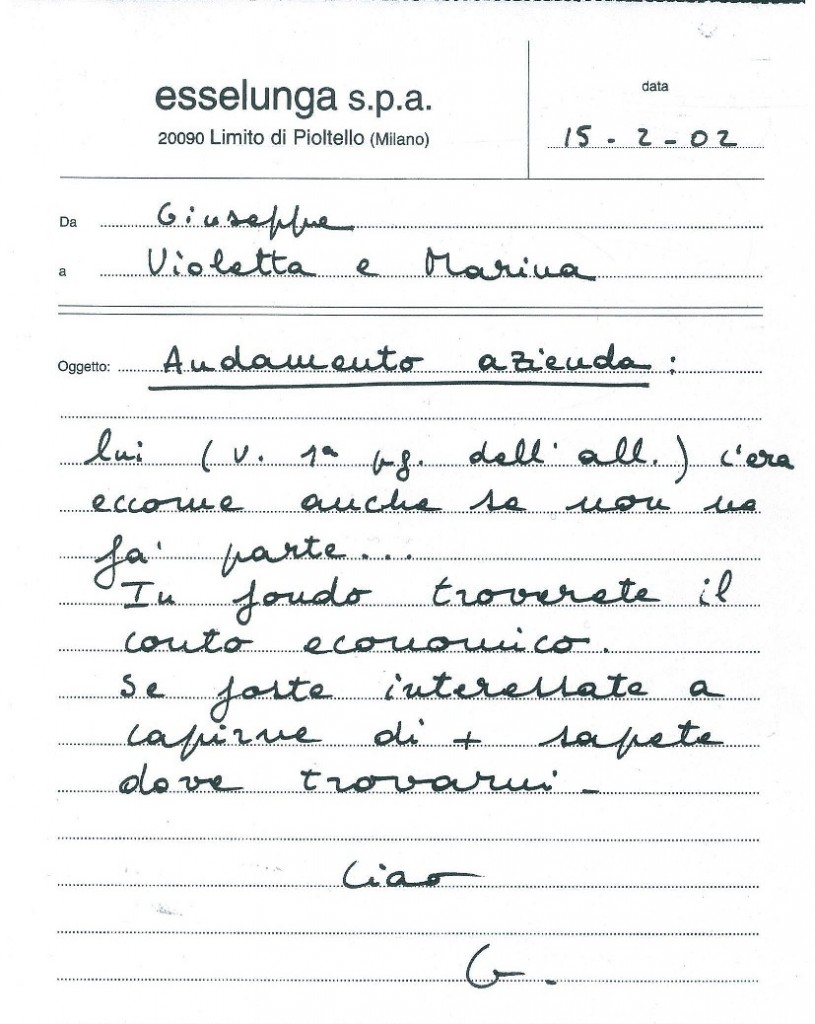 esselunga s.p.a.
20090 Limito di Pioltello (Milano)
data
15 - 2 - 02
Da Giuseppe
a Violetta e Marina
Oggetto: Andamento azienda :
lui ( v. 1ª pg. dell' all. ) c'era
eccome anche se non ne
fa' parte...
In fondo troverete il
conto economico.
Se foste interessate a
capirne di + sapete
dove trovarmi -
Ciao
G.